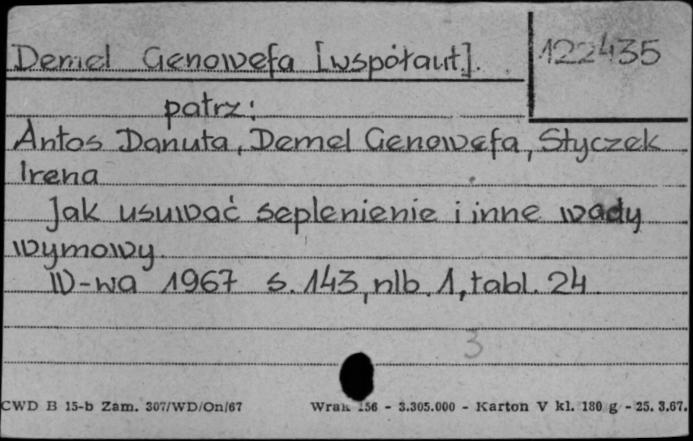 Demel Genowefa [współaut].
122435
patrz:
Antos Danuta, Demel Genowefa, Styczek
Irena
Jak usuwać seplenienie i inne wady
wymowy.
W-wa 1967 s. 143, nlb. 1, tabl. 24
3
CWD B 15-b Zam. 307/WD/On/67 156 - 3.305.000 - Karton V kl. 180 g - 25. 3.67.